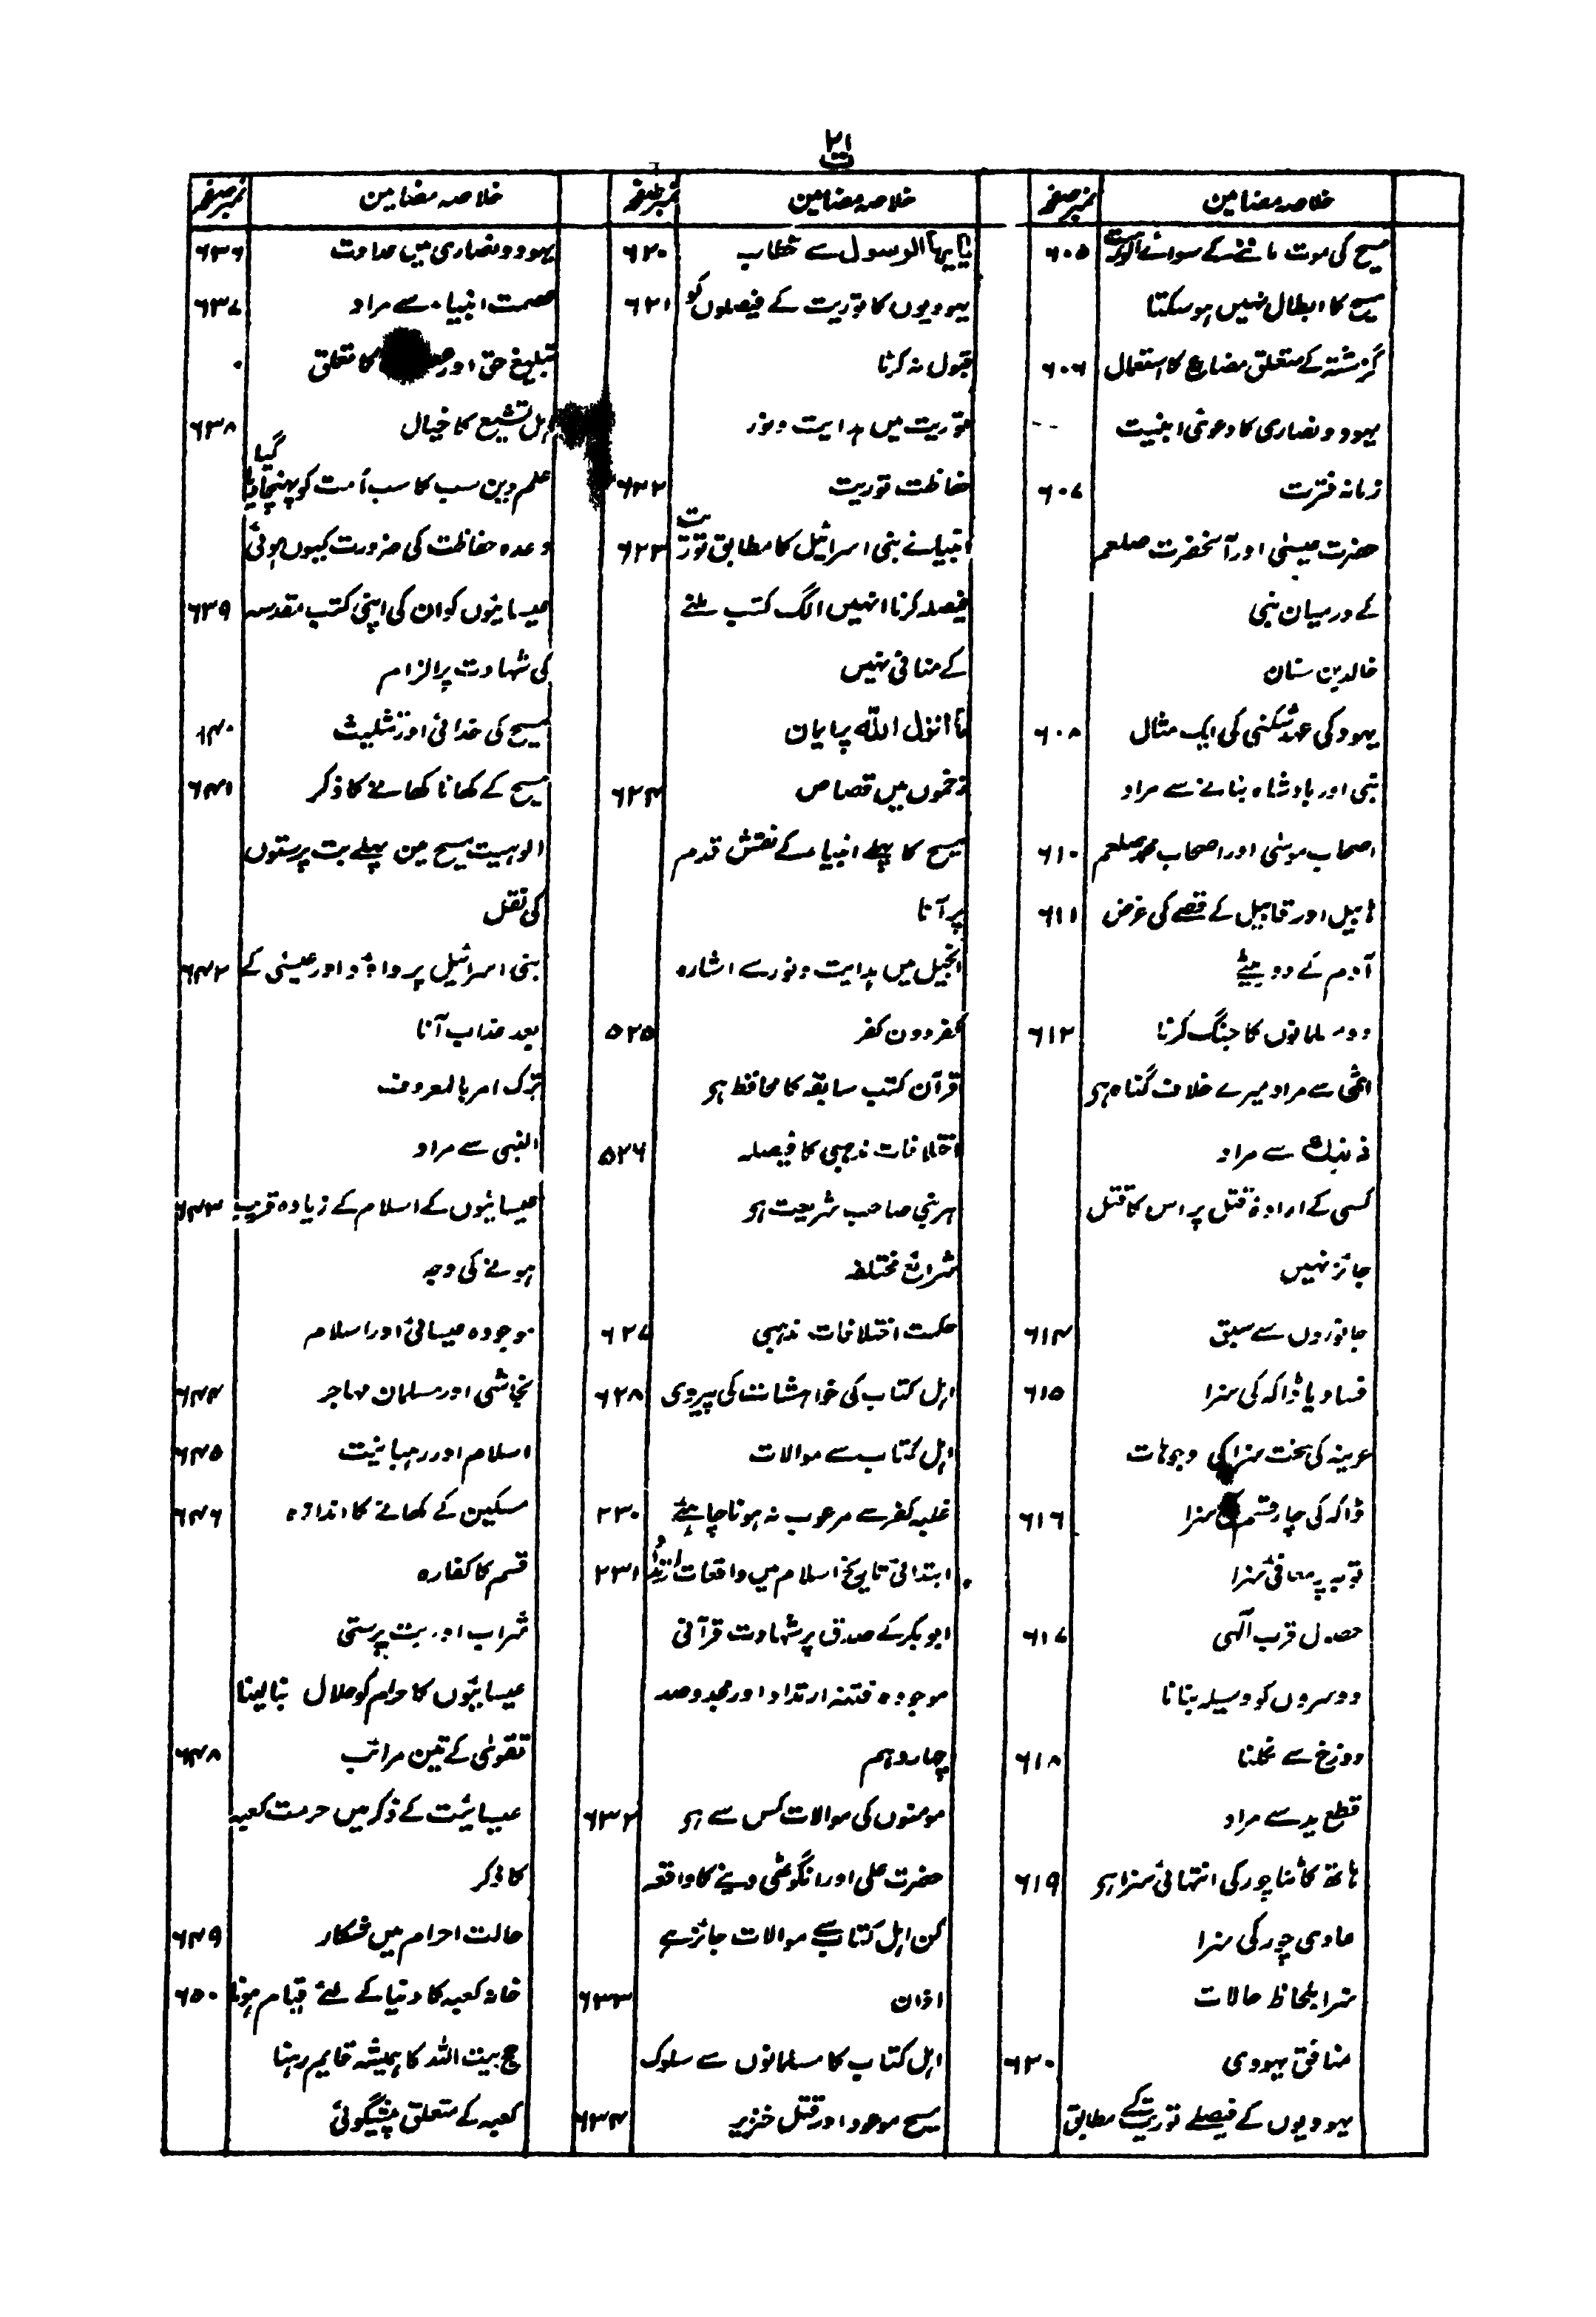 ۲۱
ت
خلاصہ مضامین نمبر صفحہ
مسیح کی موت ماننے کے سوائے الوہیت ۶۰۵
مسیح کا ابطال نہیں ہو سکتا
گزشتہ کے متعلق مضارع کا استعمال ۶۰۶
یہود و نصاریٰ کا دعویٰ ابنیت --
زمانہ فترت ۶۰۷
حضرت عیسٰی اور آنحضرت صلعم
کے درمیان نبی
خالد بن سنان
یہود کی عہد شکنی کی ایک مثال ۶۰۸
نبی اور بادشاہ بنانے سے مراد
اصحاب موسٰی اور اصحاب محمد صلعم ۶۱۰
ہابیل اور قابیل کے قصے کی غرض ۶۱۱
آدم کے دو بیٹے
دو مسلمانوں کا جنگ کرنا ۶۱۲
اثمی سے مراد میرے خلاف گناہ ہو
ذنبك سے مراد
کسی کے ارادۂ قتل پر اس کا قتل
جائز نہیں
جانوروں سے سبق ۶۱۴
فساد یا ڈاکہ کی سزا ۶۱۵
عرینہ کی سخت سزا کی وجوہات
ڈاکہ کی چار قسم کی سزا ۶۱۶
توبہ پر معافیٔ سزا
حصول قرب الٰہی ۶۱۷
دوسروں کو وسیلہ بنانا
دوزخ سے نکلنا ۶۱۸
قطع ید سے مراد
ہاتھ کاٹنا چور کی انتہائی سزا ہو ۶۱۹
عادی چور کی سزا
سزا بلحاظ حالات
منافق یہودی ۶۲۰
یہودیوں کے فیصلے توریت کے مطابق
خلاصہ مضامین نمبر صفحہ
یایہا الرسول سے خطاب ۶۲۰
یہودیوں کا توریت کے فیصلوں کو ۶۲۱
قبول نہ کرنا
توریت میں ہدایت و نور
حفاظت توریت ۶۲۲
انبیائے بنی اسرائیل کا مطابق توریت ۶۲۳
فیصلہ کرنا انہیں الگ کتب ملنے
کے منافی نہیں
ما انزل اللّٰہ پر ایمان
زخموں میں قصاص ۶۲۴
مسیح کا پہلے انبیاء کے نقش قدم
پر آنا
انجیل میں ہدایت و نور سے اشارہ
کفر دون کفر ۵۲۵
قرآن کتب سابقہ کا محافظ ہو
اختلافات مذہبی کا فیصلہ ۵۲۶
ہر نبی صاحب شریعت ہو
شرائع مختلفہ
حکمت اختلافات مذہبی ۶۲۷
اہل کتاب کی خواہشات کی پیروی ۶۲۸
اہل کتاب سے موالات
غلبہ کفر سے مرعوب نہ ہونا چاہئے ۲۳۰
ابتدائی تاریخ اسلام میں واقعات ارتداد ۲۳۱
ابوبکر کے صدق پر شہادت قرآنی
موجودہ فتنہ ارتداد اور مجدد صد
چار دہم
مومنوں کی موالات کس سے ہو ۶۳۲
حضرت علی اور انگوٹھی دینے کا واقعہ
کن اہل کتاب سے موالات جائز ہے
اذان ۶۳۳
اہل کتاب کا مسلمانوں سے سلوک
مسیح موعود اور قتل خنزیر ۶۳۴
خلاصہ مضامین نمبر صفحہ
یہود و نصاریٰ میں عداوت ۶۳۶
عصمت انبیاء سے مراد ۶۳۷
تبلیغ حق اور کا تعلق ۰
اہل تشیع کا خیال ۶۳۸
علم دین سب کا سب اُمت کو پہنچا دیا گیا
وعدہ حفاظت کی ضرورت کیوں ہوئی
عیسائیوں کو ان کی اپنی کتب مقدسہ ۶۳۹
کی شہادت پر الزام
مسیح کی خدائی اور تثلیث ۶۴۰
مسیح کے کھانا کھانے کا ذکر ۶۴۱
الوہیت مسیح میں پہلے بت پرستوں
کی نقل
بنی اسرائیل پر داؤد اور عیسٰی کے ۶۴۲
بعد عذاب آنا
ترک امر بالمعروف
النبی سے مراد
عیسائیوں کے اسلام کے زیادہ قریب ۶۴۳
ہونے کی وجہ
موجودہ عیسائی اور اسلام
نجاشی اور مسلمان مہاجر ۶۴۴
اسلام اور رہبانیت ۶۴۵
مسکین کے کھانے کا اندازہ ۶۴۶
قسم کا کفارہ
شراب اور بت پرستی
عیسائیوں کا حرام کو حلال بنا لینا
تقویٰ کے تین مراتب ۶۴۸
عیسائیت کے ذکر میں حرمت کعبہ
کا ذکر
حالت احرام میں شکار ۶۴۹
خانہ کعبہ کا دنیا کے لئے قیام ہونا ۶۵۰
حج بیت اللہ کا ہمیشہ قایم رہنا
کعبہ کے متعلق پیشگوئی